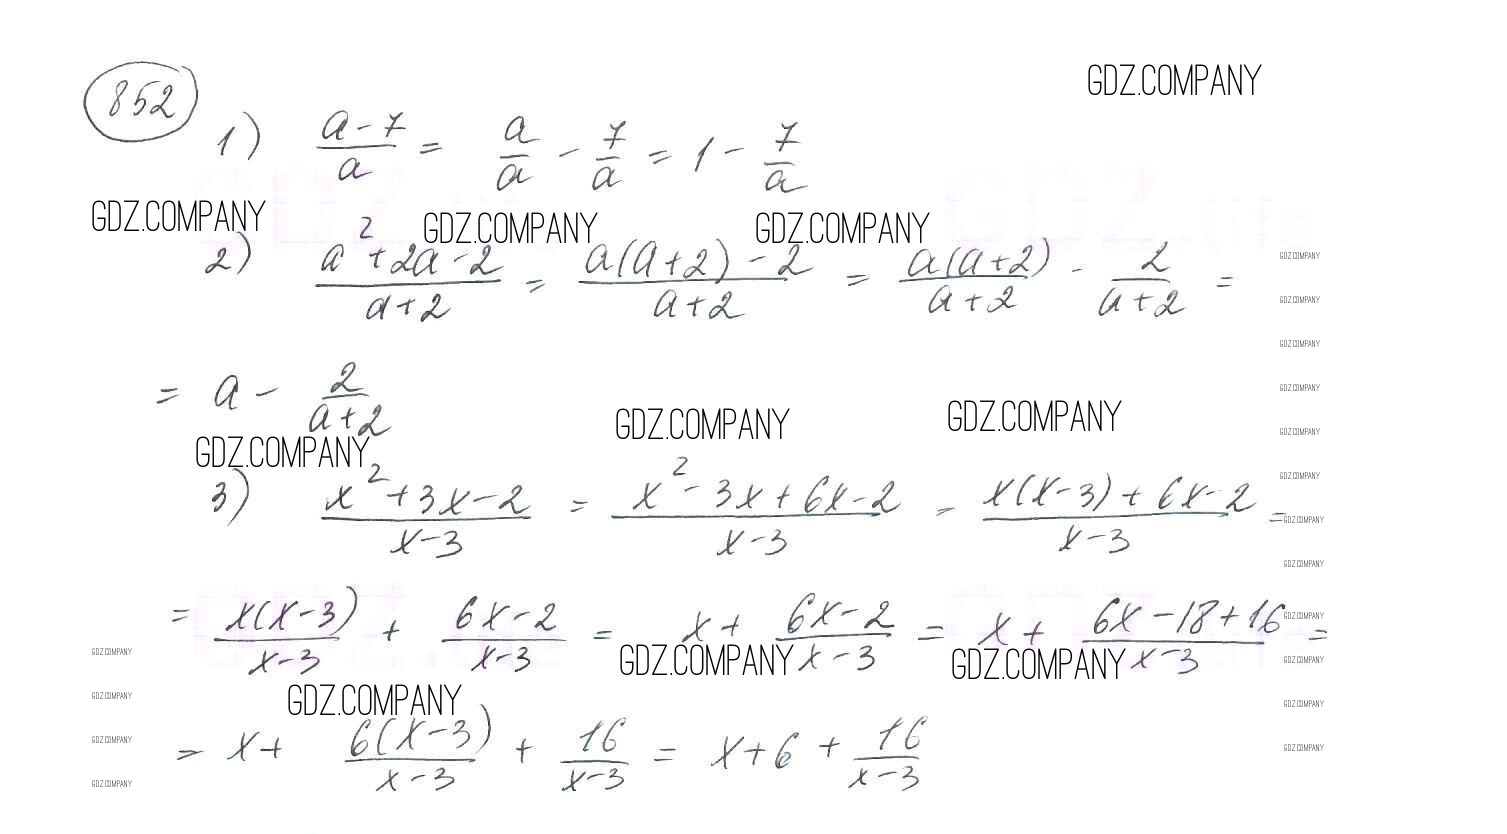 852
GDZ.COMPANY
1) (a-7)/a = a/a - 7/a = 1 - 7/a
GDZ.COMPANY GDZ.COMPANY GDZ.COMPANY
2) (a²+2a-2)/(a+2) = (a(a+2)-2)/(a+2) = a(a+2)/(a+2) - 2/(a+2) =
GDZ.COMPANY
GDZ.COMPANY
GDZ.COMPANY
= a - 2/(a+2)
GDZ.COMPANY
GDZ.COMPANY GDZ.COMPANY GDZ.COMPANY
GDZ.COMPANY
GDZ.COMPANY
3) (x²+3x-2)/(x-3) = (x²-3x+6x-2)/(x-3) = (x(x-3)+6x-2)/(x-3) =
GDZ.COMPANY
GDZ.COMPANY
= x(x-3)/(x-3) + (6x-2)/(x-3) = x + (6x-2)/(x-3) = x + (6x-18+16)/(x-3) =
GDZ.COMPANY
GDZ.COMPANY GDZ.COMPANY GDZ.COMPANY GDZ.COMPANY
GDZ.COMPANY GDZ.COMPANY GDZ.COMPANY
= x + 6(x-3)/(x-3) + 16/(x-3) = x+6 + 16/(x-3)
GDZ.COMPANY GDZ.COMPANY
GDZ.COMPANY